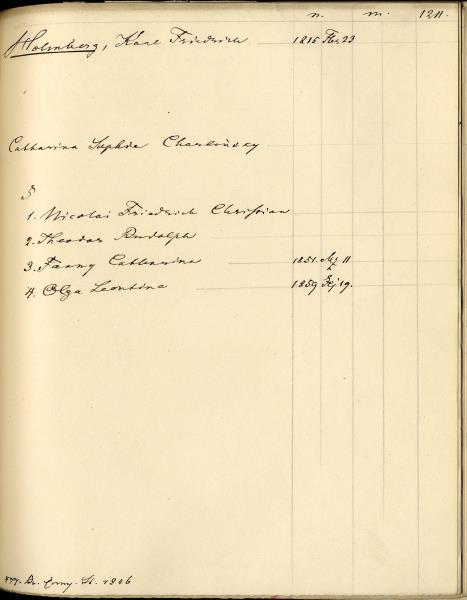 n. m. 1211.
Holmberg, Karl Friedrich 1815 Fbr 23
Catharina Sophie
1. Nicolai Friedrich Christian
2. Theodor Rudolph
3. Fanny Catharina 1851. 11
4. Olga Leontina 1859 19.